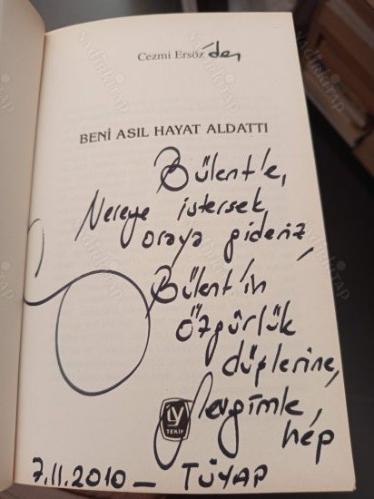 Cezmi Ersöz'den
BENİ ASIL HAYAT ALDATTI
Bülent'e,
Nereye istersek
oraya gideriz,
Bülent'in
özgürlük
düşlerine,
sevgimle,
hep
LY
TEKİN
7.11.2010 – TÜYAP